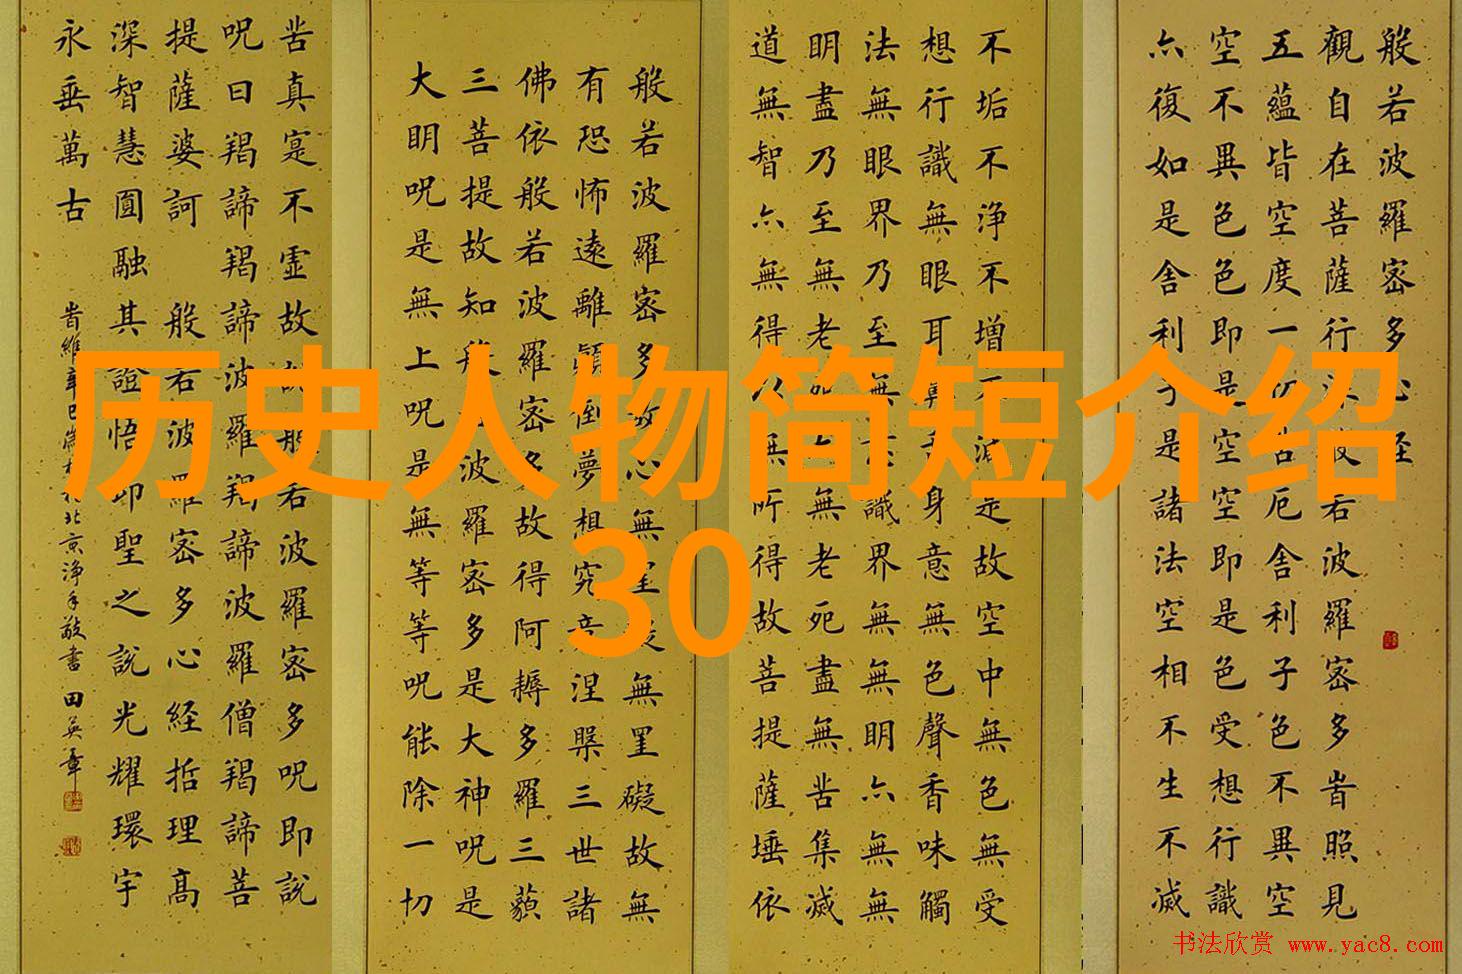 般若波羅密多心经
觀自在菩薩行深般若波羅密多峕照見
五蘊皆空度一切苦厄舎利子色不異空
空不異色色即是空空即是色受想行識
亦復如是舎利子是諸法空相不生不滅
不垢不浄不增不減是故空中無色無受
想行識無眼耳鼻舌身意無色聲香味觸
法無眼界乃至無意識界無無明亦無無
明盡乃至無老死亦無老死盡無苦集滅
道無智亦無得以無所得故菩提薩埵依
般若波羅密多故心無罣礙無罣礙故無
有恐怖遠離顛倒夢想究竟涅槃三世諸
佛依般若波羅密多故得阿耨多羅三藐
三菩提故知般若波羅密多是大神呪是
大明呪是無上呪是無等等呪能除一切
苦真寔不虚故說般若波羅密多呪即說
呪曰羯諦羯諦波羅羯諦波羅僧羯諦菩
提薩婆訶 般若波羅密多心経括理高
深智慧圓融其證悟即聖之説光耀環宇
永垂萬古 峕維辛巳歲 北京浄手敬書 田英章
历史人物简短介绍
30
书法欣赏 www.yac8.com